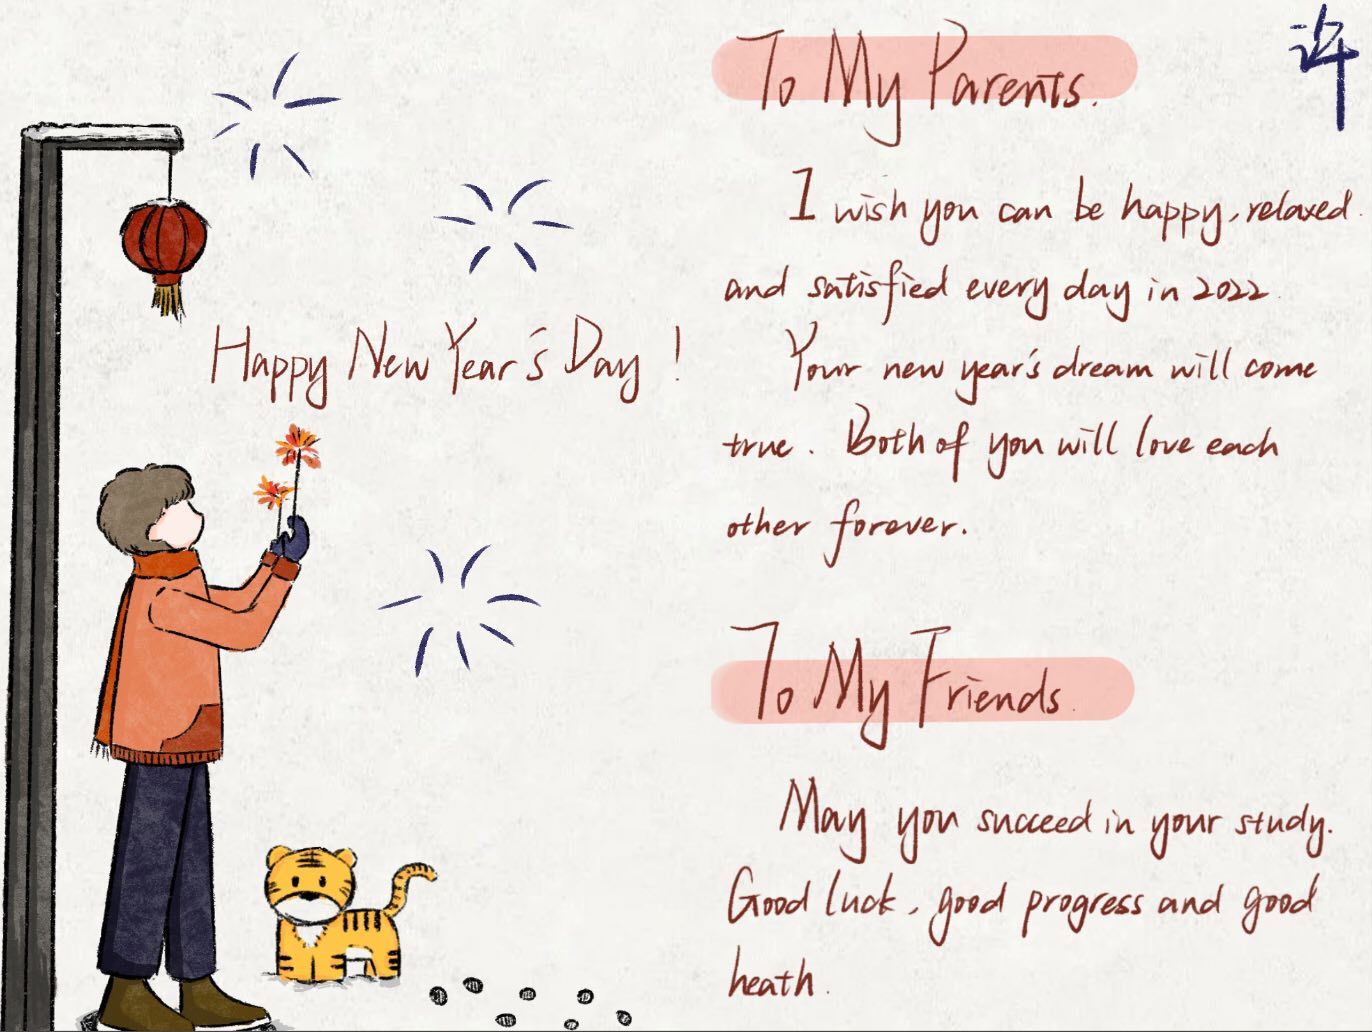 Happy New Year's Day !
To My Parents.
许
I wish you can be happy, relaxed
and satisfied every day in 2022
Your new year's dream will come
true. Both of you will love each
other forever.
To My Friends.
May you succeed in your study.
Good luck, good progress and good
heath.